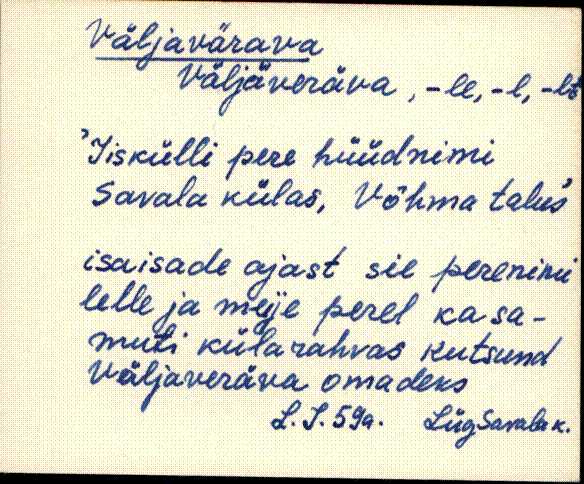 Väljavärava
Väljäveräva, -le, -l, -lt
'Iiskülli pere hüüdnimi
Savala külas, Võhma talus'
isaisade ajast sie perenimi
lelle ja meije perel ka sa-
muti külarahvas kutsund
Väljaveräva omadeks
L. I. 59a. LügSavala k.